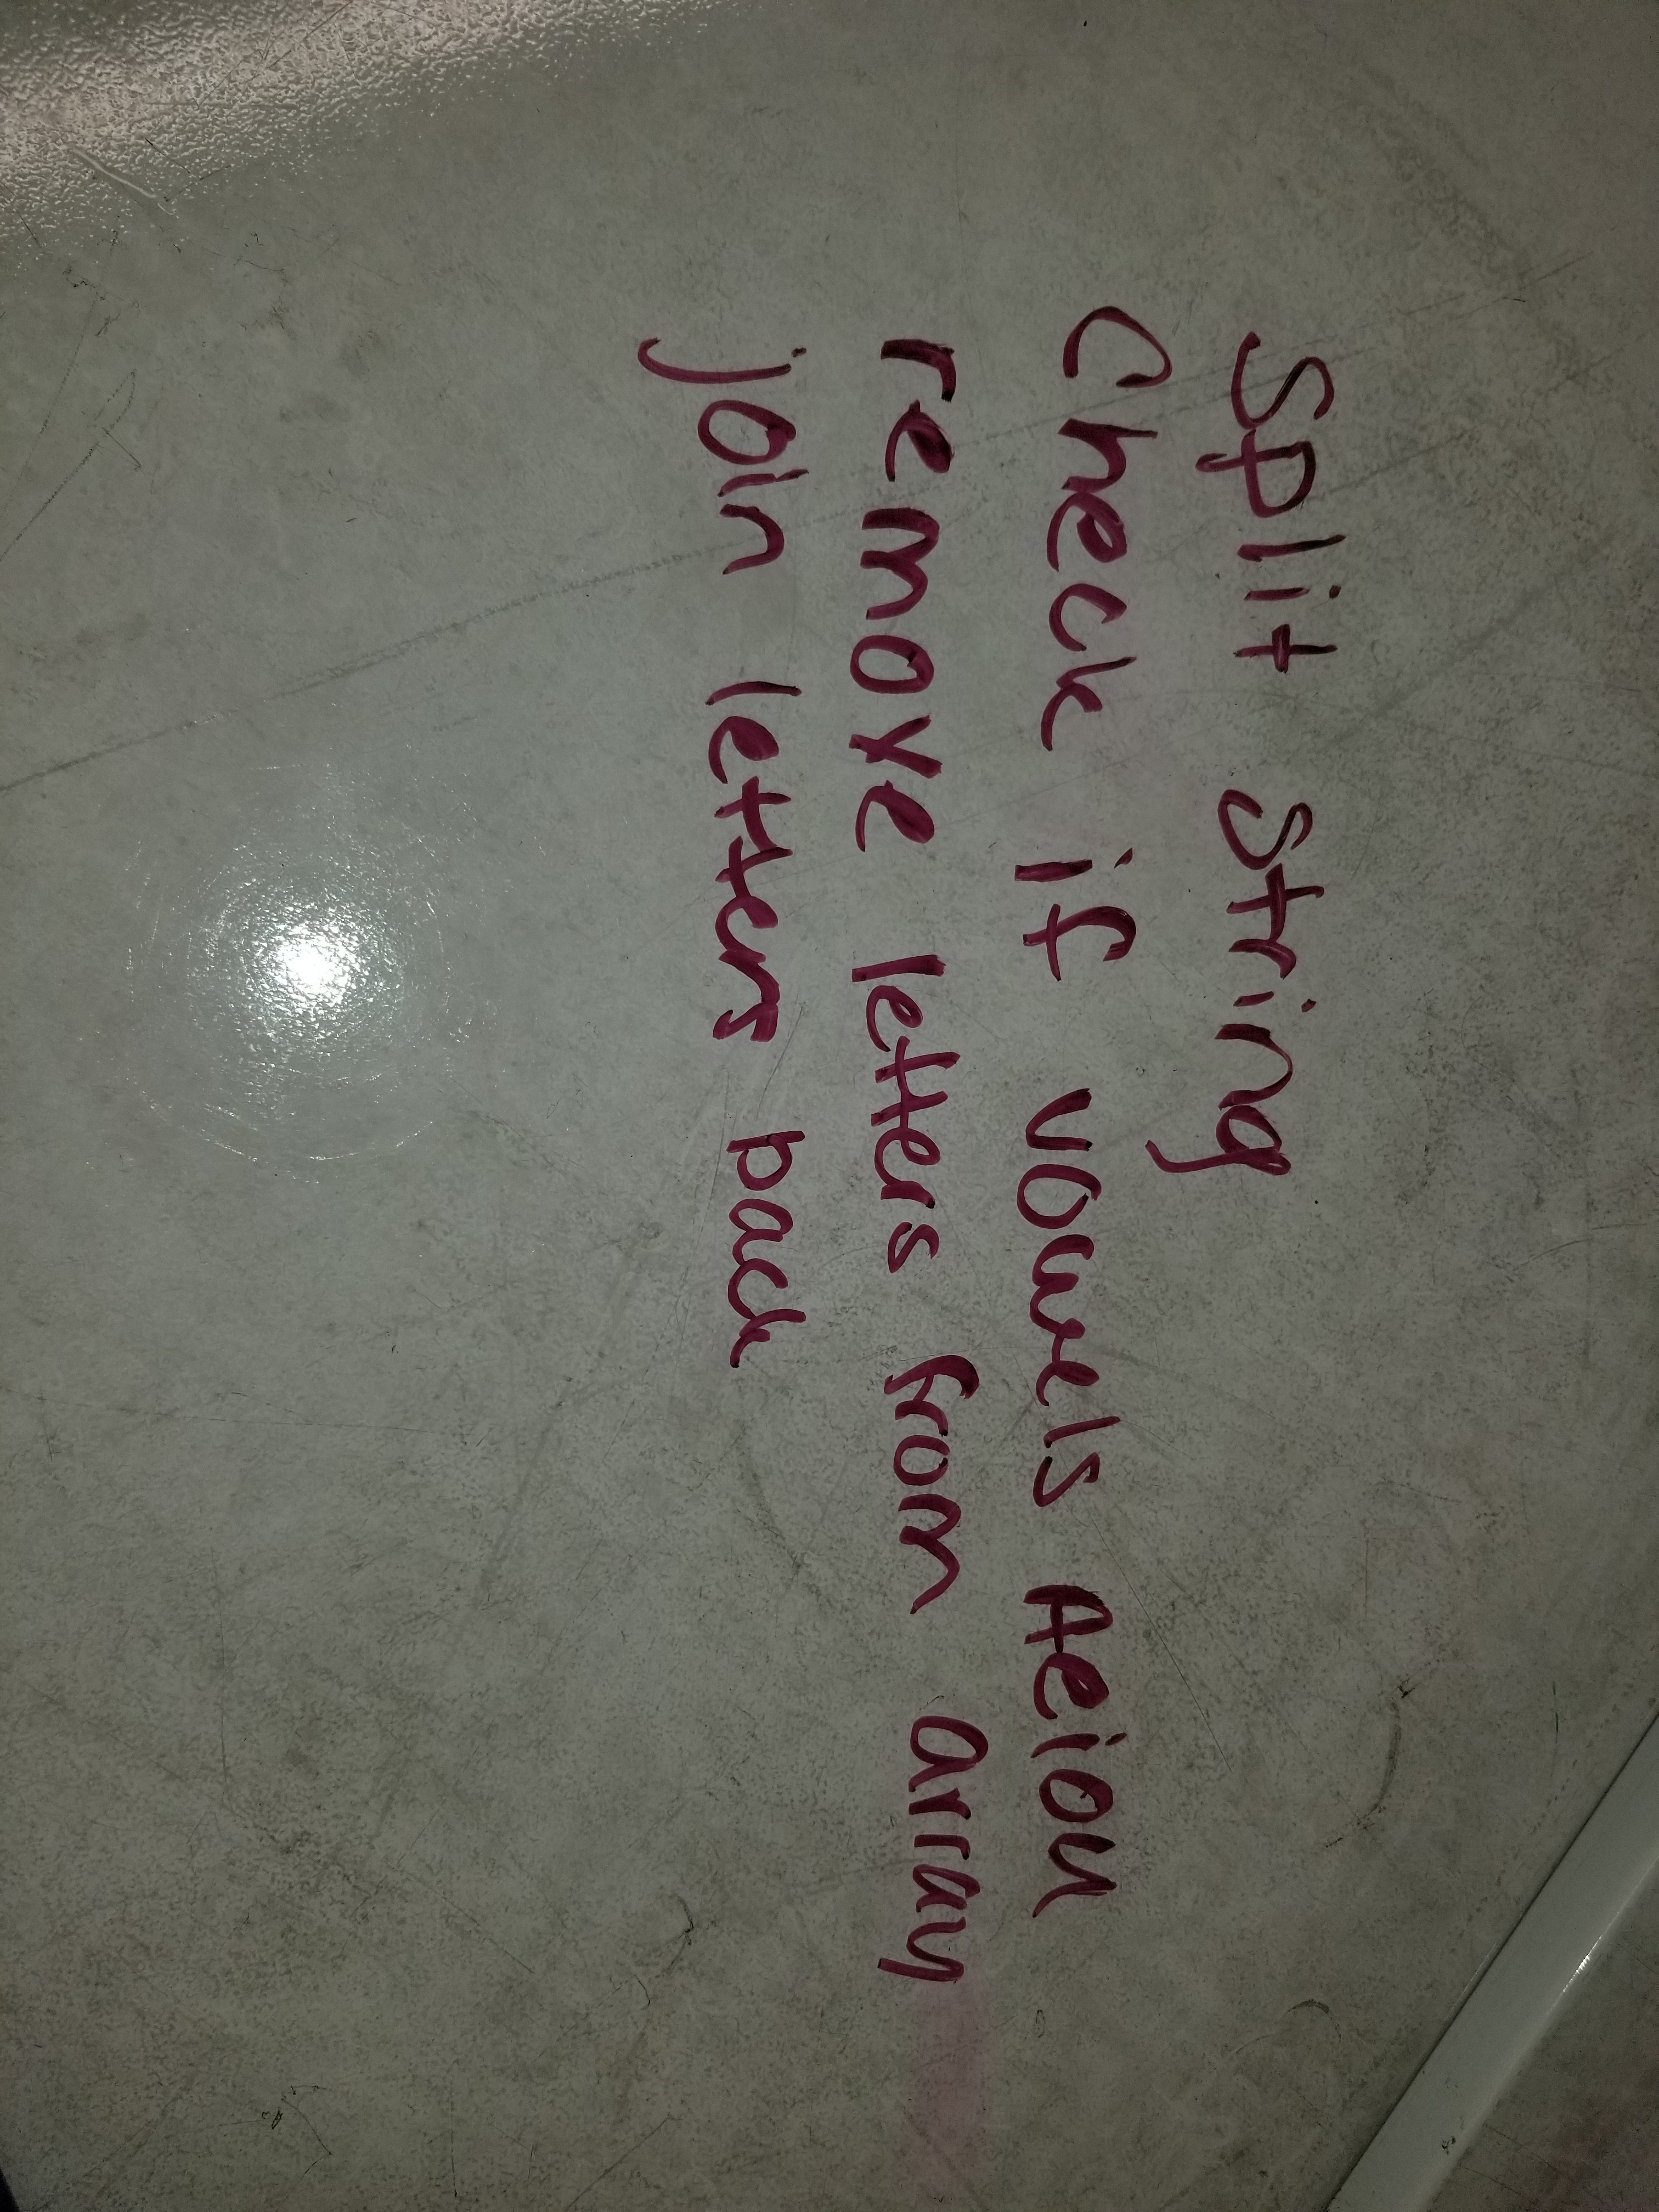 Split string
Check if vowels Aeiou
remove letters from array
join letters back